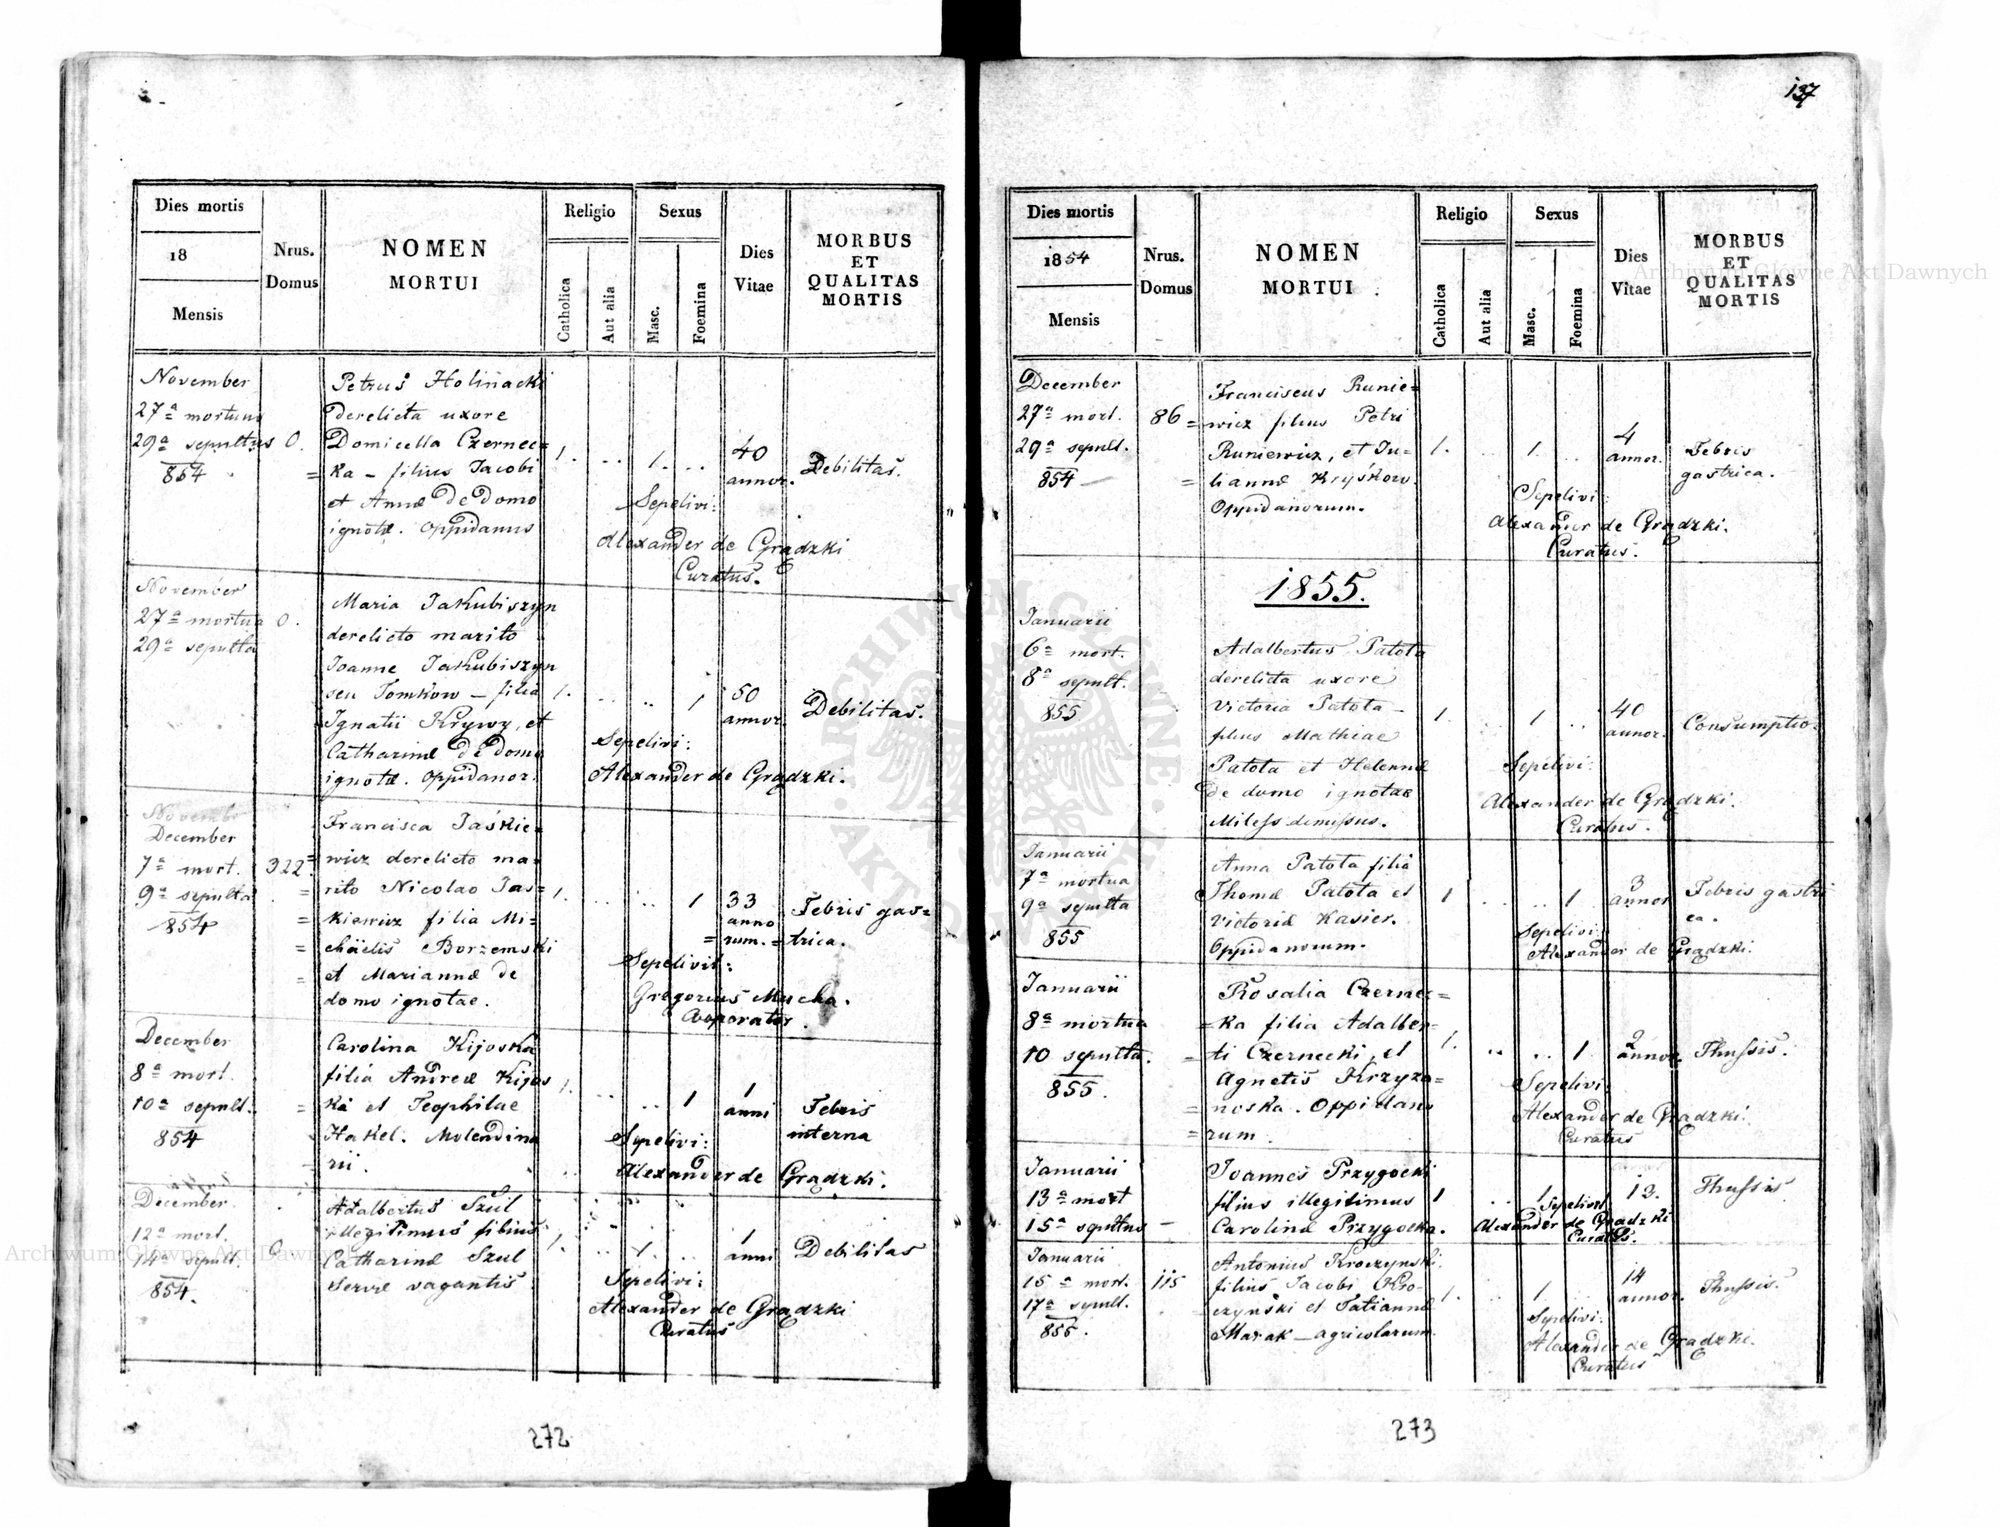 Dies mortis
18
Mensis
Nrus.
Domus
NOMEN
MORTUI
Religio
Catholica
Aut alia
Sexus
Masc.
Foemina
Dies
Vitae
MORBUS
ET
QUALITAS
MORTIS
November
27ª mortuus
29ª sepultus
854
0.
Petrus Holinacki
derelicta uxore
Domicella Czernec=
=ka – filius Jacobi
et Annæ De Domo
ignotæ. Oppidanus
1. .. 1. ..
40
annor.
Debilitas.
Sepelivi:
Alexander de Grądzki
Curatus.
November
27ª mortua
29ª sepulta
0.
Maria Jakubiszyn
derelicto marito
Joanne Jakubiszyn
seu Tomków – filia
Ignatii Krywy, et
Catharinæ De Domo
ignotæ. Oppidanor.
1. .. .. 1
50
annor.
Debilitas.
Sepelivi:
Alexander de Grądzki.
November
December
7ª mort.
9ª sepulta
854
322.
Francisca Jaśkie=
=wicz derelicto ma=
=rito Nicolao Jas=
=kiewicz filia Mi=
=chäelis Borzemski
=et Mariannæ de
domo ignotae.
1. .. .. 1
33
anno
=rum.=
Febris gas=
=trica.
Sepelivit:
Gregorius Mucha.
Cooperator.
December
8ª mort.
10ª sepult.
854
Carolina Kijoska
filia Andreæ Kijos
=ki et Teophilae
Hakel. Molendina
rii.
1. .. .. 1
1
anni
Febris
interna
Sepelivi:
Alexander de Grądzki.
December
12ª mort.
14ª sepult.
854.
0
Adalbertus Szul
illegitimus filius
Catharinæ Szul
Servæ vagantis
1. .. 1. ..
1
anni
Debilitas
Sepelivi:
Alexander de Grądzki
Curatus
272
137
Dies mortis
1854
Mensis
Nrus.
Domus
NOMEN
MORTUI
Religio
Catholica
Aut alia
Sexus
Masc.
Foemina
Dies
Vitae
MORBUS
ET
QUALITAS
MORTIS
December
27ª mort.
29ª sepult.
854
86
Franciscus Runie=
=wicz filius Petri
Runiewicz, et Ju=
=liannæ Kryśków.
Oppidanorum.
1. .. 1. ..
4
annor.
Febris
gastrica.
Sepelivi:
Alexander de Grądzki.
Curatus.
1855.
Januarii
6ª mort.
8ª sepult.
855
Adalbertus Patota
derelicta uxore
Victoria Patota –
filius Mathiae
Patota et Helennæ
De domo ignotae
Miless demissus.
1. .. 1 ..
40
annor.
Consumptio.
Sepelivi:
Alexander de Grądzki.
Curatus.
Januarii
7ª mortua
9ª sepulta
855
Anna Patota filia
Thomæ Patota et
Victoriæ Kasier.
Oppidanorum.
1 .. .. 1
3
annor
Febris gastri
ca.
Sepelivi:
Alexander de Grądzki.
Januarii
8ª mortua
10 sepulta.
855.
Rosalia Czernec=
=ka filia Adalber=
=ti Czernecki, et
Agnetis Krzyża=
=noska. Oppidano
=rum.
1. .. .. 1
2
annor.
Thussis.
Sepelivi:
Alexander de Grądzki.
Curatus
Januarii
13ª mort
15ª sepultus
–
Joannes Przygocki
filius illegitimus
Carolinæ Przygocka.
1 .. 1
13.
Thussis
Sepelivit
Alexander de Grądzki
Curatus.
Januarii
15ª mort.
17ª sepult.
855.
115
Antonius Kroczynski
filius Jacobi Kro-
czyński et Tatiannæ
Mazak – agricolarum.
1. .. 1 ..
14
annor.
Thussis.
Sepelivi:
Alexander de Grądzki.
Curatus
273
Archiwum Główne Akt Dawnych
Archiwum Główne Akt Dawnych
ARCHIWUM GŁÓWNE AKT DAWNYCH